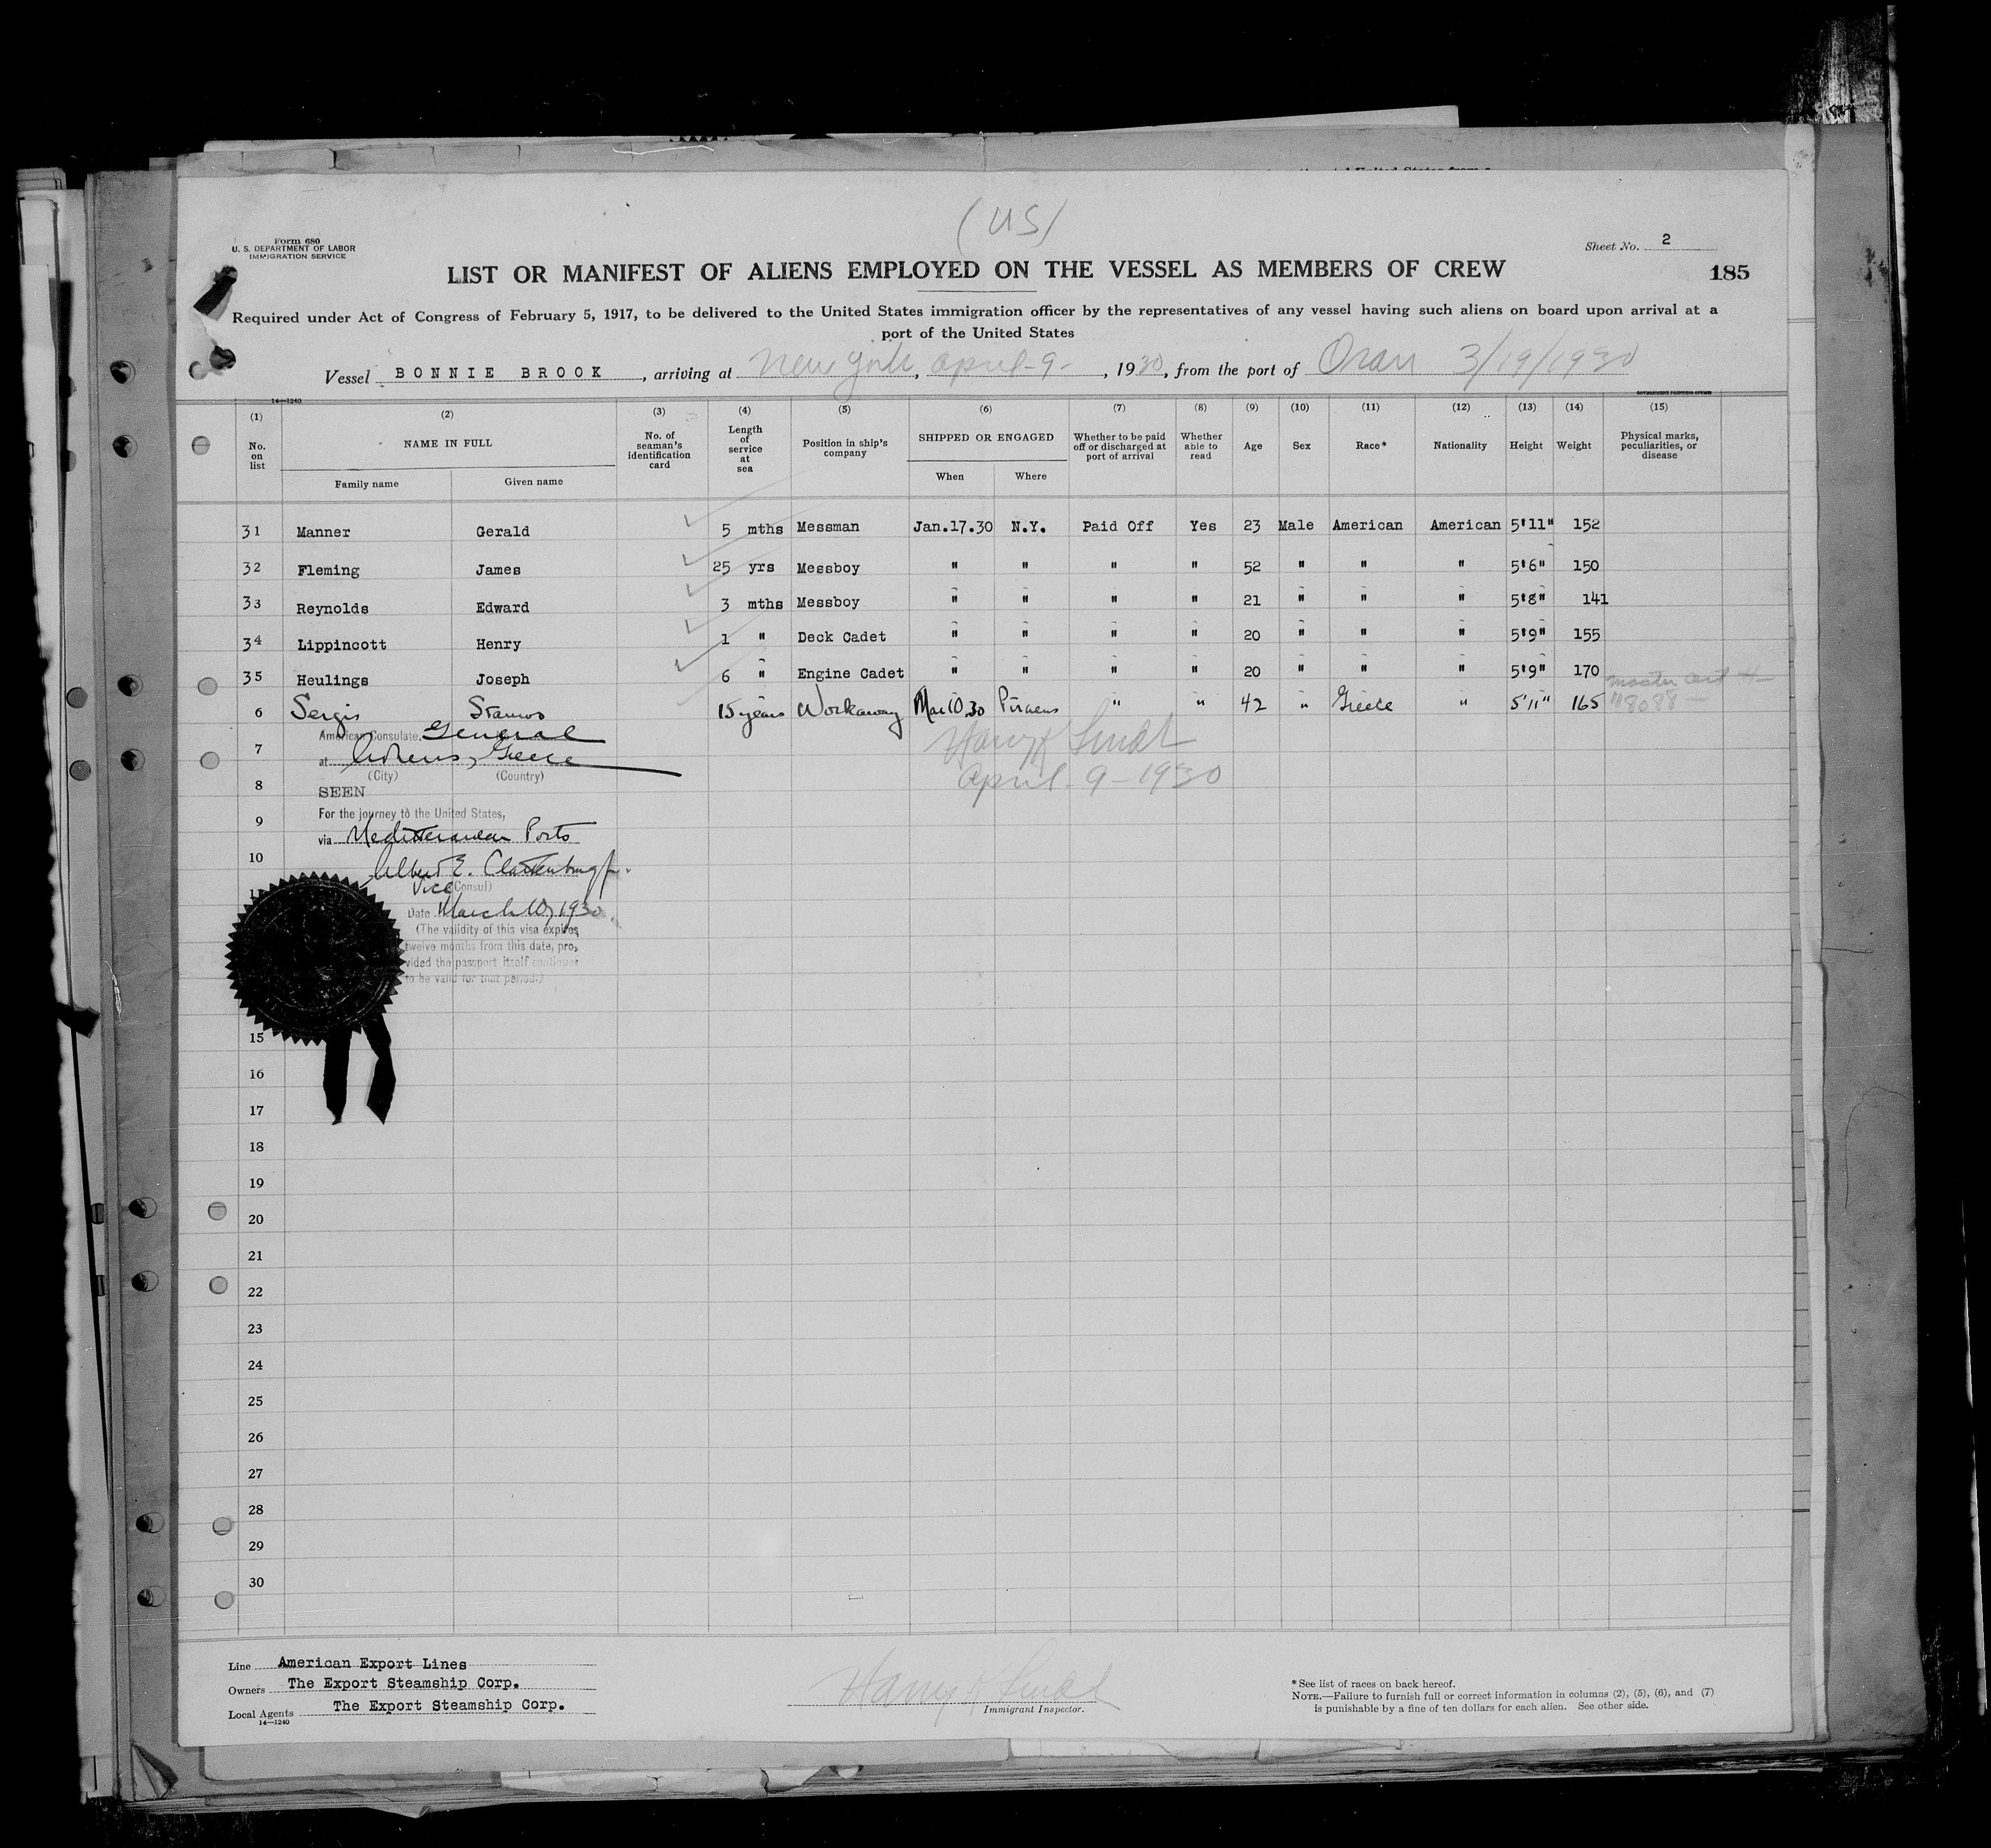 (US)
Form 680
U. S. DEPARTMENT OF LABOR
IMMIGRATION SERVICE
Sheet No. 2
LIST OR MANIFEST OF ALIENS EMPLOYED ON THE VESSEL AS MEMBERS OF CREW
185
Required under Act of Congress of February 5, 1917, to be delivered to the United States immigration officer by the representatives of any vessel having such aliens on board upon arrival at a
port of the United States
Vessel BONNIE BROOK, arriving at New York, April-9-, 1930, from the port of Oran 3/19/1930
14—1240
GOVERNMENT PRINTING OFFICE
(1) (2) (3) (4) (5) (6) (7) (8) (9) (10) (11) (12) (13) (14) (15)
No. on list NAME IN FULL No. of seaman's identification card Length of service at sea Position in ship's company SHIPPED OR ENGAGED Whether to be paid off or discharged at port of arrival Whether able to read Age Sex Race* Nationality Height Weight Physical marks, peculiarities, or disease
Family name Given name When Where
31 Manner Gerald 5 mths Messman Jan.17.30 N.Y. Paid Off Yes 23 Male American American 5'11" 152
32 Fleming James 25 yrs Messboy " " " " 52 " " " 5'6" 150
33 Reynolds Edward 3 mths Messboy " " " " 21 " " " 5'8" 141
34 Lippincott Henry 1 " Deck Cadet " " " " 20 " " " 5'9" 155
35 Heulings Joseph 6 " Engine Cadet " " " " 20 " " " 5'9" 170
6 Sergis Stamos 15 years Workaway Mar 10.30 Piraeus " " 42 " Greece " 5'11" 165
American Consulate, General
7 at Athens, Greece
(City) (Country)
April-9-1930
8 SEEN
For the journey to the United States,
9 via Mediterranean Ports
10 Albert E. Clattenburg Jr.
11 Vice (Consul)
Date March 10, 1930.
(The validity of this visa expires
twelve months from this date, pro-
vided the passport itself continues
to be valid for that period.)
15
16
17
18
19
20
21
22
23
24
25
26
27
28
29
30
Line American Export Lines
Owners The Export Steamship Corp.
Local Agents The Export Steamship Corp.
14—1240
Immigrant Inspector.
*See list of races on back hereof.
NOTE.—Failure to furnish full or correct information in columns (2), (5), (6), and (7)
is punishable by a fine of ten dollars for each alien. See other side.